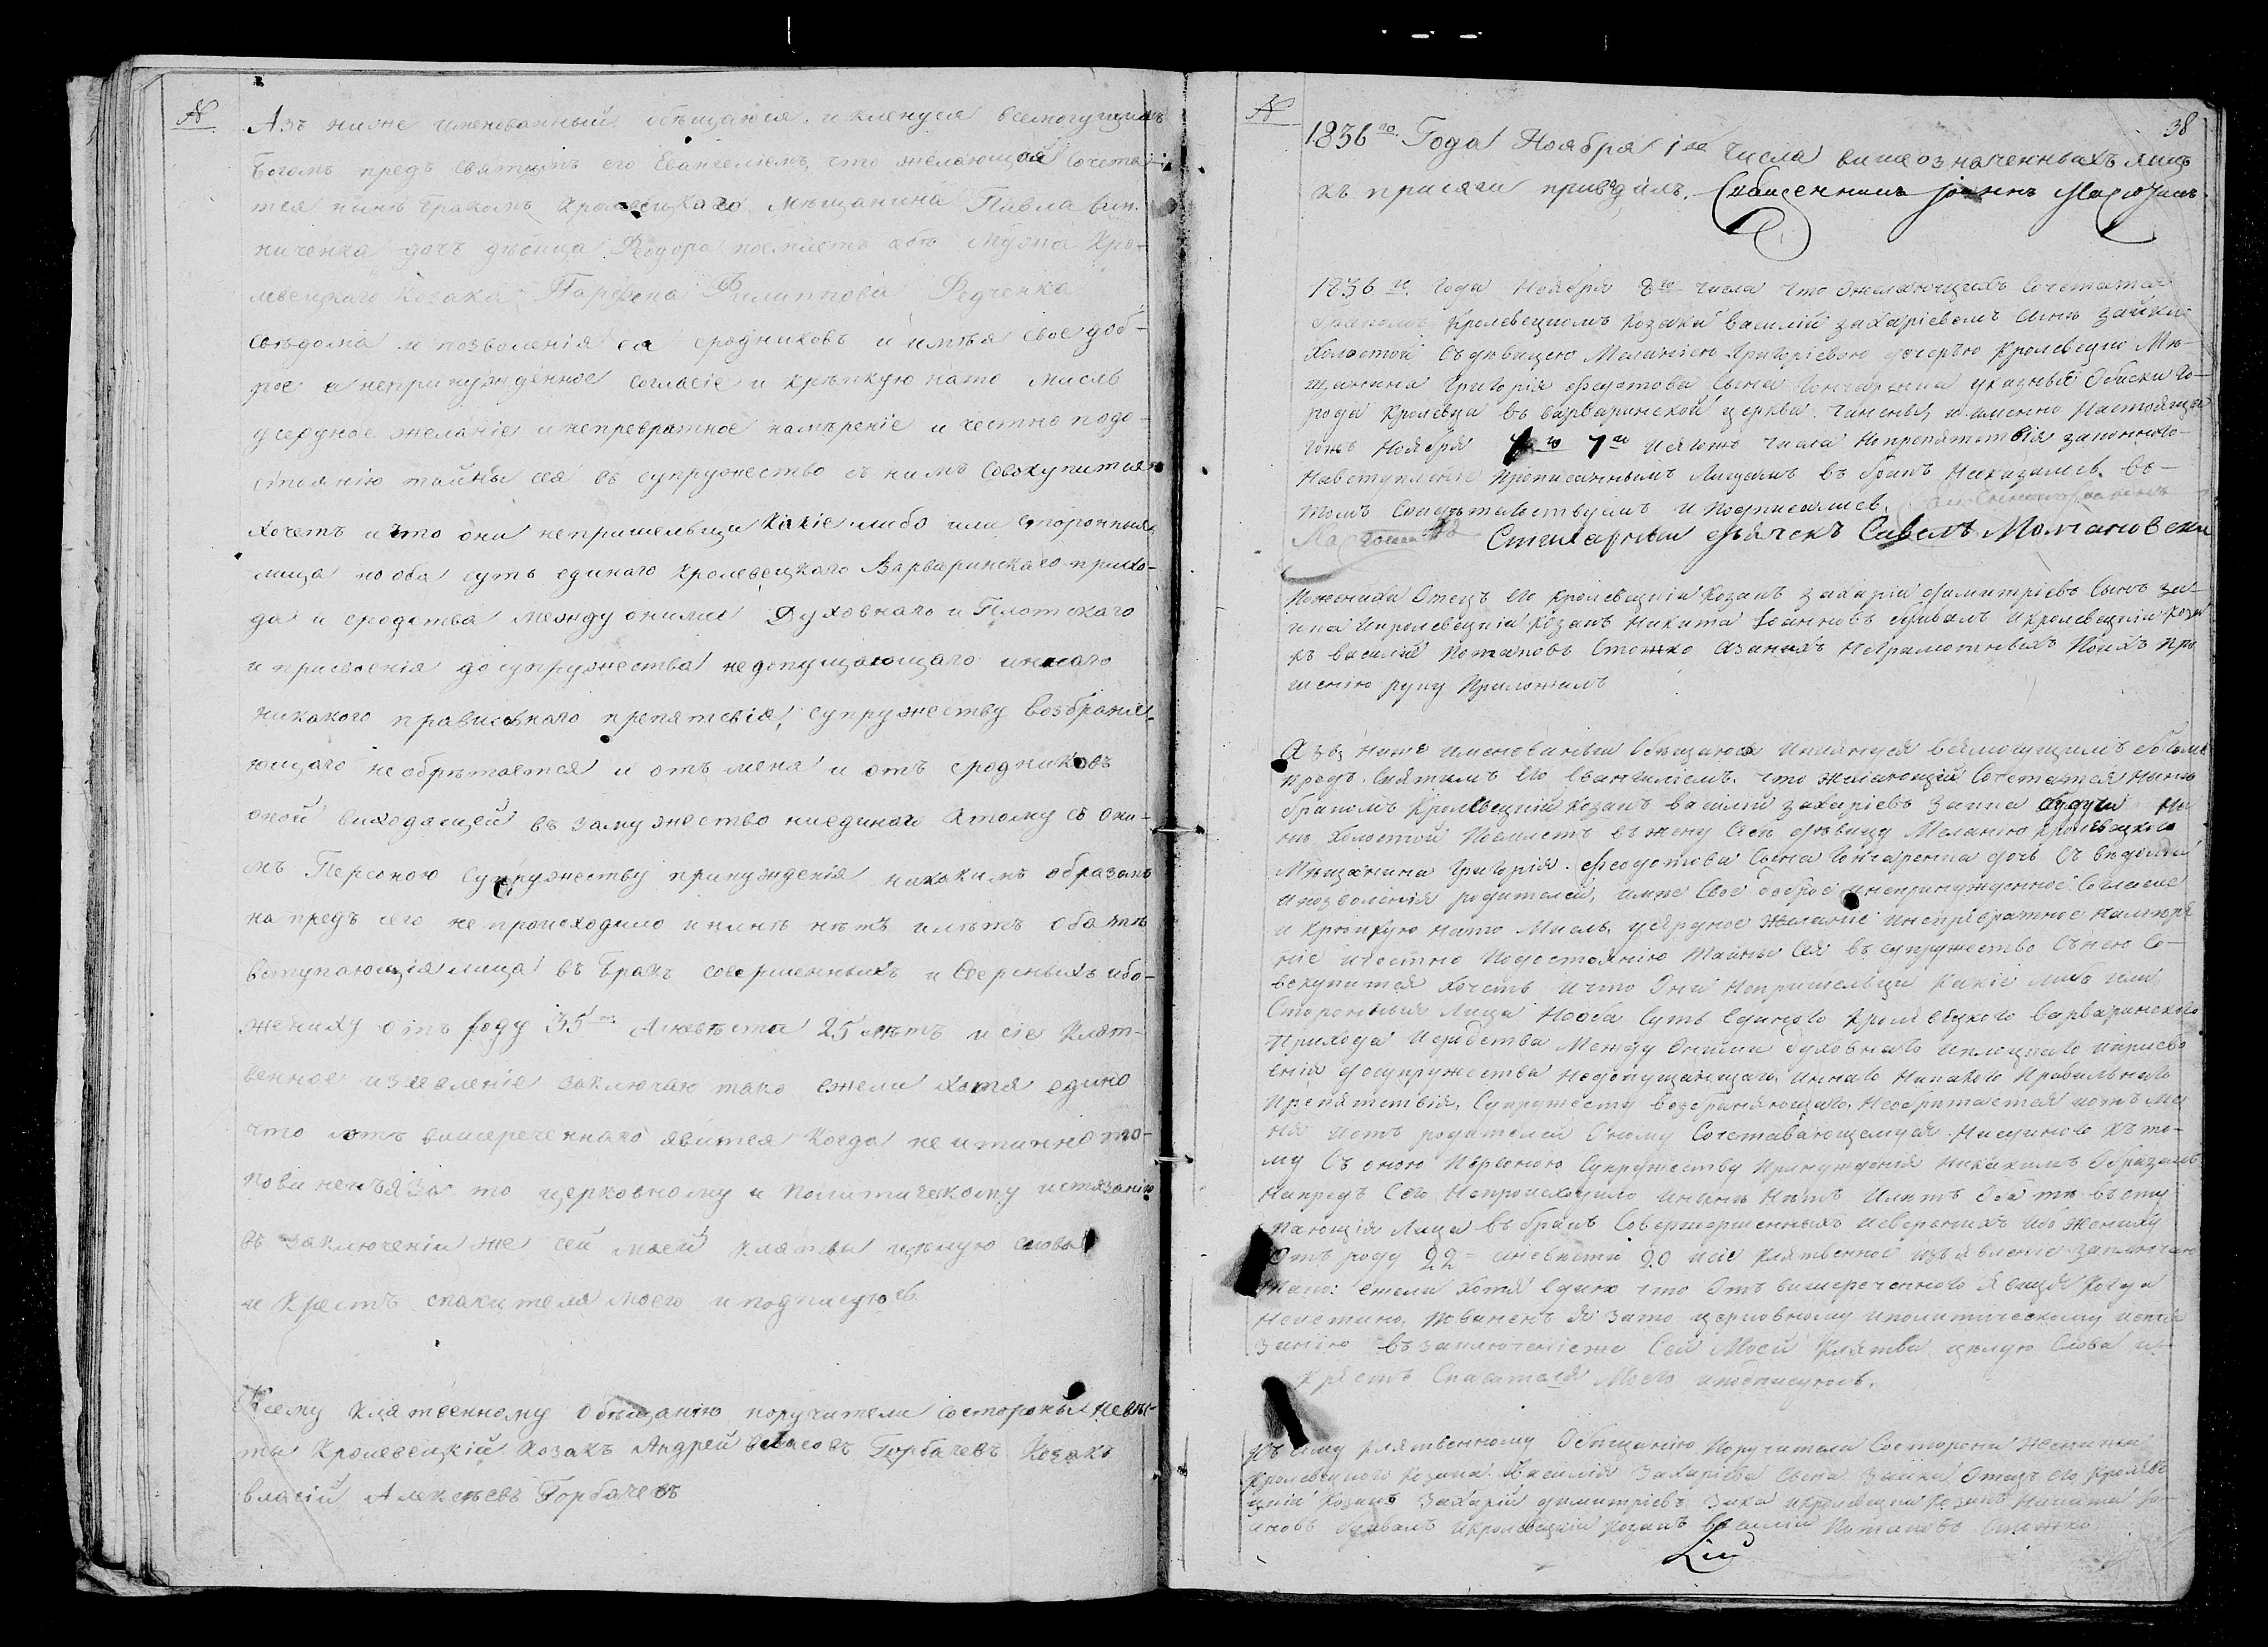 №
Азъ ниже именованный обѣщаюся и кленуся всемогущимъ
Богомъ предъ святымъ его Евангелiемъ, что желающая сочета-
тся нынѣ бракомъ кролевецкаго мѣщанина Павла
ниченка дочъ дѣвица Феодора поемлетъ себѣ мужа Кро-
левецкаго Козака Парфена Филиппова Федченка
свѣдома и позволенiя ея сродниковъ и имѣя свое доб-
рое и непринужденное согласiе и крѣпкую нато мисль
усердное желанiе и непревратное намѣренiе и честно подо-
стоянiю тайны сея въ супружество съ нимъ совокупится
хочетъ и что они непришельци какiе либо или сторонныя
лица но оба суть единаго кролевецкаго Варваринскаго прихо-
да и сродства между оними Духовнаго и Плотскаго
и присвоенiя до супружества недопущающаго иннаго
никакого правилнаго препятсвiя, супружеству возбраня-
ющаго необрѣтается и отъ мена и отъ сродниковъ
оной виходящей въ замужество ниединой ктому съ они-
мъ Персоною супружеству принужденiя никакимъ образомъ
на предъ сего не происходило и нинѣ нѣтъ и лѣтъ оба тѣ
вступающiя лица въ Бракъ совершенныхъ и Сверсныхъ ибо-
жениху отъ роду 35 а невѣсты 25 лѣтъ и сiе Клят-
венное изявленiе заключаю тако ежели хотя едино
что отъ вишереченнаго явится когда не истинно то-
повиненъ я за то церковному и политическому истязанiю
въ заключенiи же сей моей клятвы цѣлую слова
и Крестъ спасителя моего и подписуюсъ.
Ксему клятвенному обѣщанiю поручители состороны невѣс-
ты Кролевецкiй Козакъ Андрей Горбачевъ Козакъ
власiй Алексѣевъ Горбачевъ
№
38
1836го Года Ноября 1го числа вишеозначенныхъ лицъ
къ присяги приводилъ. Священникъ Iоаннъ
1836го года Ноября 8го числа что желающихъ сочетатся
бракомъ Кролевецкомъ Козаки василiй захарiевомъ сынъ зайки
холостой съдѣвицею Меланiею Григорiевою дочерью Кролевецко Мѣ-
щанина Григорiя Федотова сына Гончаренка указныя обиски го-
рода Кролевца въ варваринской церкви чинены, и именно настояща
гожъ Ноября 7го числа Непрепятствiя законного
Навступленiе прописаннымъ Лицамъ въ бракъ Неказалисъ. въ-
томъ Свидѣтелствуемъ и Подписалисъ.
Стихарный дьячекъ Савелъ Молчановский
Поженихи Отецъ его Кролевецкiй Козакъ захарiй Димитрiевъ Сынъ за-
ика Икролевецкiй Козакъ Никита Iоанновъ Икролевецкiй Коза
къ василiй Потаповъ Стожко азанихъ Неграмотныхъ Поихъ про
шенiю руку Приложилъ
Азъ ниже именованный Обѣщаюся Икленуся всемогущимъ Богомъ
Предъ Святимъ Его Евангилiемъ. что желающiй Сочетатся нинѣ
бракомъ Кролевецкiй козакъ василiй захарiевъ Заика будучи
нъ Холостой Поемлетъ въ жену себѣ дѣвицу Меланiю Кролевецкого
Мѣщанина Григорiя Феодотова Сына Гончаренка дочъ Съ вѣдома
Ипозволенiя родителей, имѣе Свое доброе инепринужденное Согласие
и Крѣпкую нато Мислъ, усердное желанiе инепревратное намѣре
нiе ичестно Подостоянiю Тайны Сея въ супружество Снею Со-
вокупится хочетъ Ичто Они Непришельци Какiе либъ или
Сторонныя Лица Нооба Суть Единого Кролевецкого варваринского
Прихода Исродства Между Оними духовнаго Иплоцкаго Иприсво
енiя Досупружества Недопущающаго, Инаго Никакого Правилънаго
Препятствiя, Супружесту возбраняющаго, Необритается иотъ ме
ня Иотъ родителей Оному Сочетавающемуся Ниединого Къто-
му Съ оною Персоною Супружеству Принужденiя Никакимъ Образомъ
Напредъ Сего Непроисходило Инине Нѣтъ Илѣтъ Оба тѣ въсту
пающiя Лица въ бракъ Совершершенныхъ Исверьнихъ Ибо жениху
Отъ роду 22 аневѣсти 20 Исiе Клятвенное изъявленiе Заключаю
тако: Ежели Хотя Едино что Отъ вишереченного Явица Когда
Неистино, Повиненъ Я зато церковному иполитическому Истя
занiю въ заключенiеже Сей Моей Клятви цѣлую Слова и
Крестъ Спасителя Моего иподписуюсъ.
Къ симу Клятвенному Обѣщанiю Поручители Состорони Жениха
Кролевецкого козака Василiя захарiева Сына Заики Отецъ его Кролеве
цкiй Козакъ Захарiй Димитрiевъ Заика икролевецкiй Козакъ Никита Iо-
ановъ Икролевецкiй козакъ Василiй Потаповъ Стожко